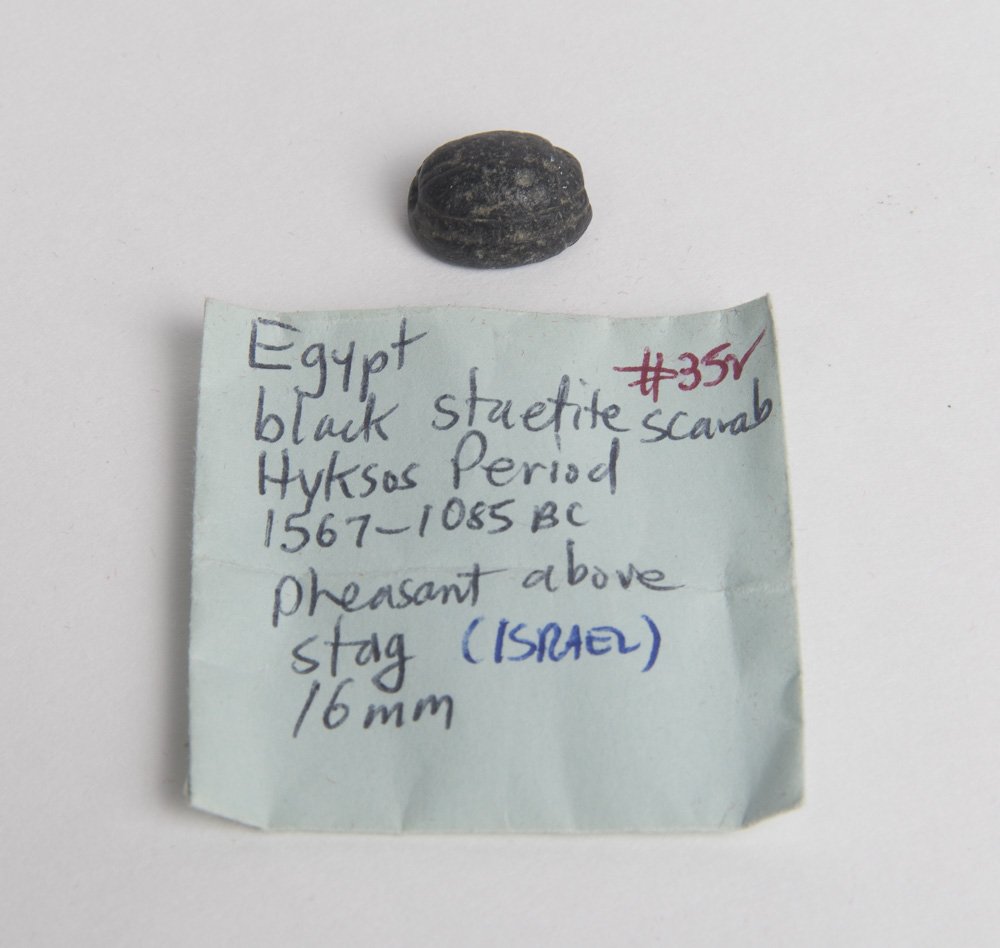 Egypt
#35✓
black staetite scarab
Hyksos Period
1567-1085 BC
pheasant above
stag (ISRAEL)
16mm